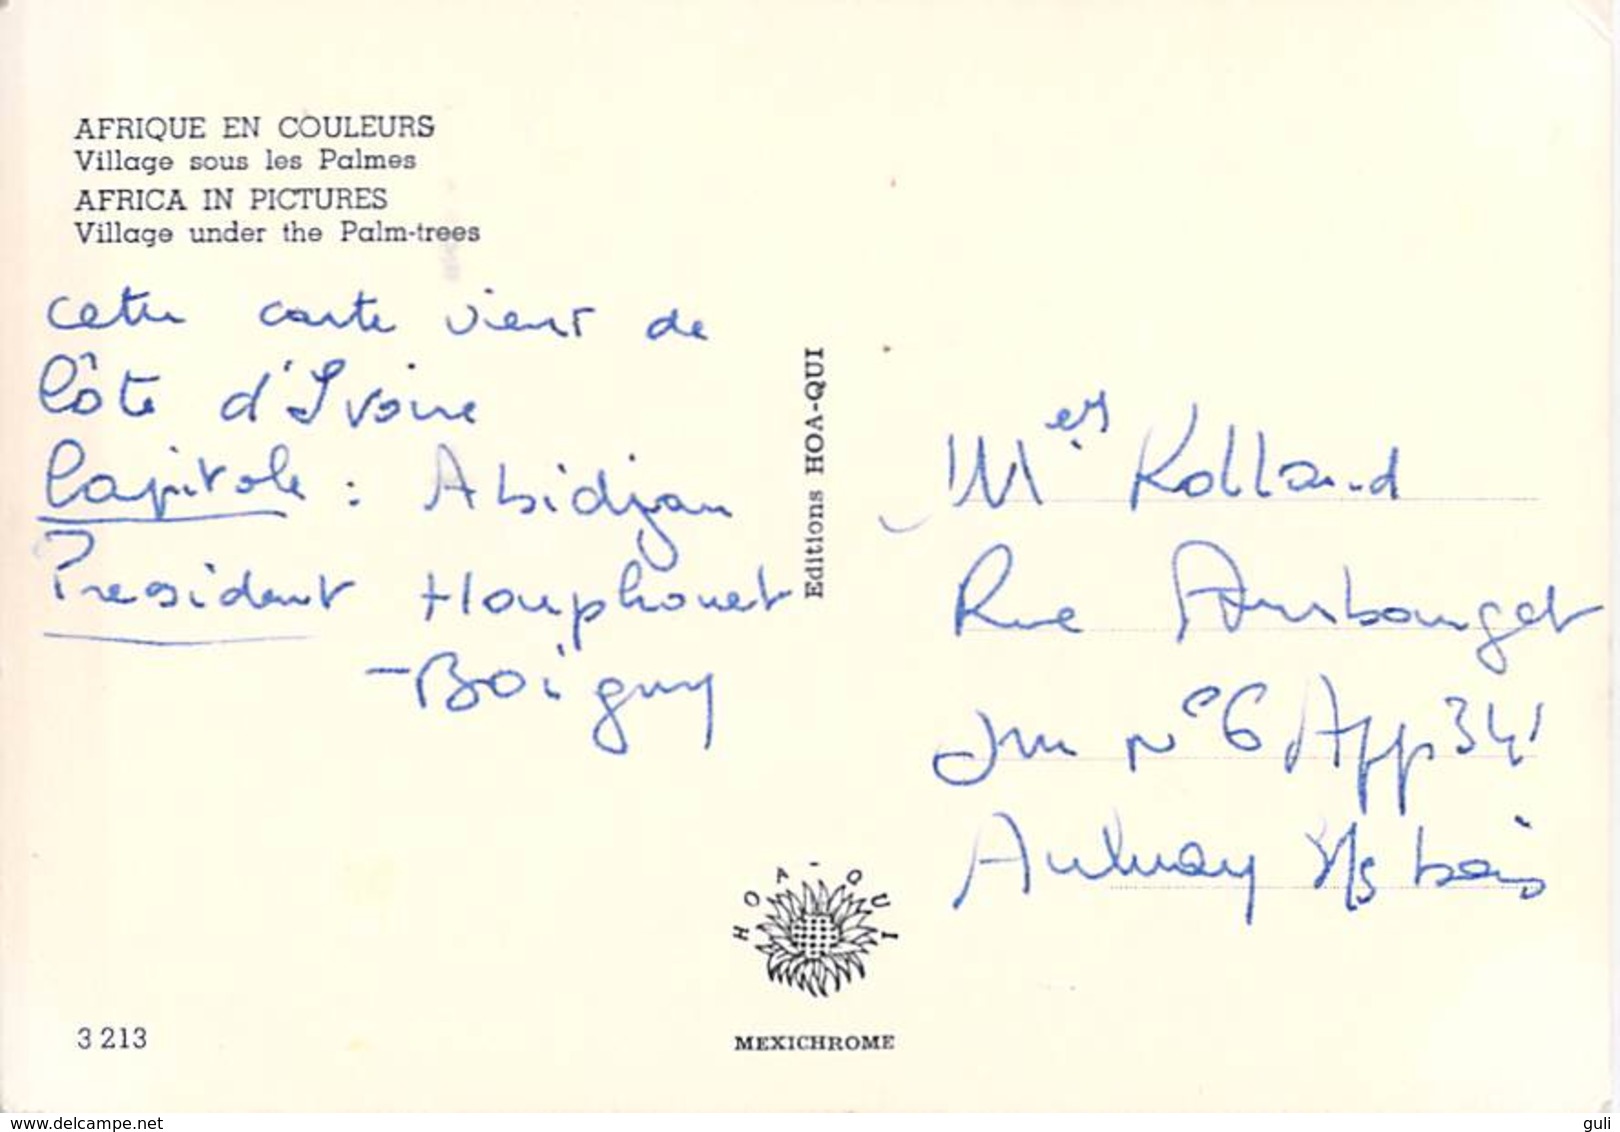 AFRIQUE EN COULEURS
Village sous les Palmes
AFRICA IN PICTURES
Village under the Palm-trees
cette carte vient de
Côte d'Ivoire
Capitole : Abidjan
President Houphouet
-Boigny
Editions HOA-QUI
Mer Kolland
Rue
Im n°6 App 34
Aulnay s/s bois
HOA-QUI
MEXICHROME
3 213
www.delcampe.net
guli